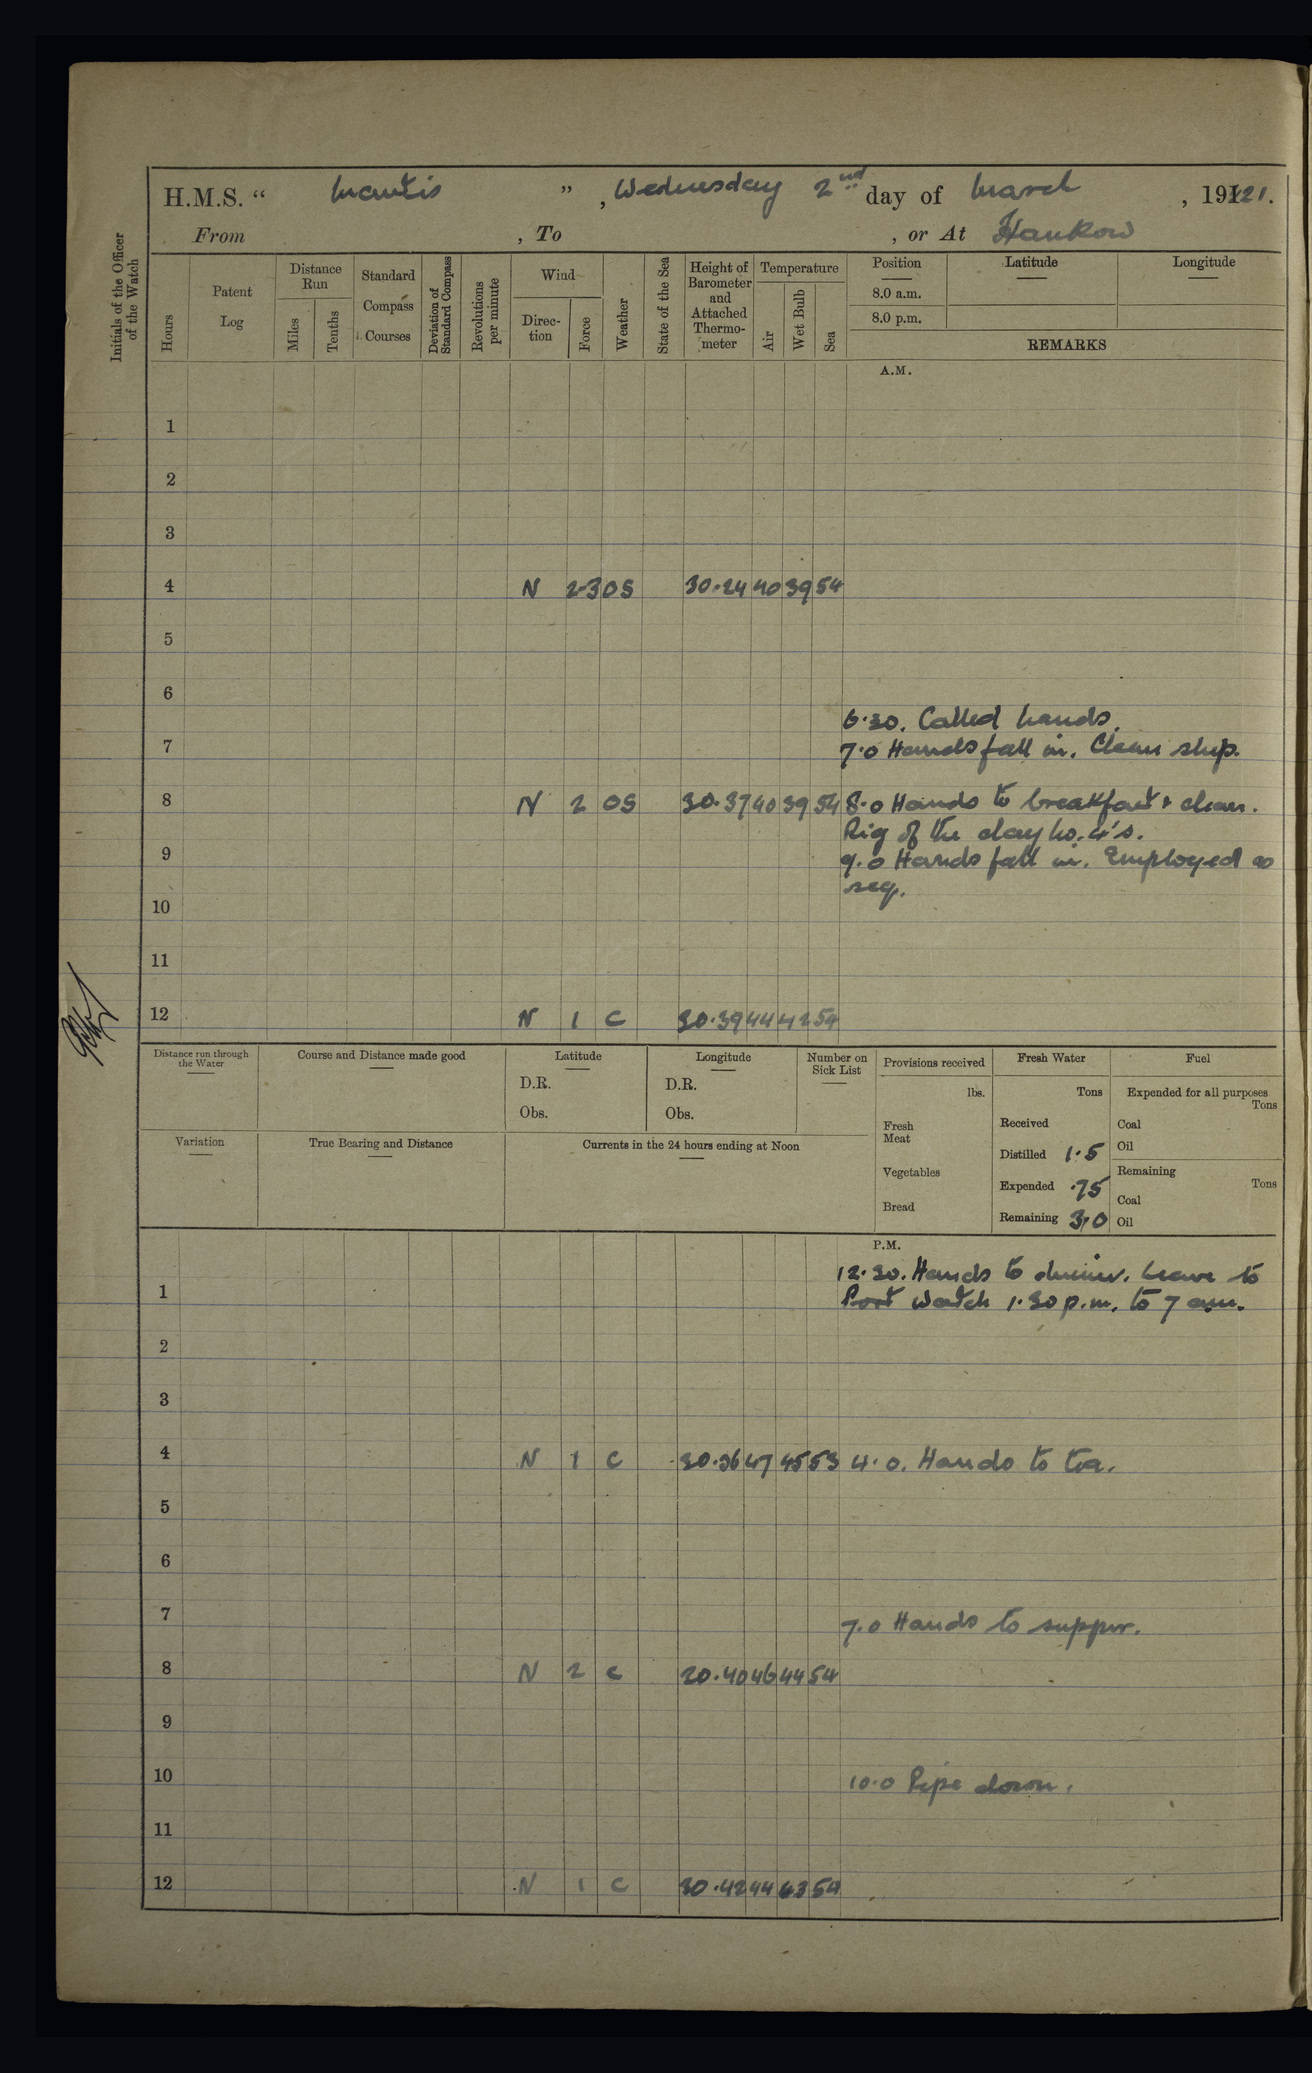 H.M.S. “ Mantis ”, Wednesday 2nd day of March, 1921.
From , To , or At Hankow
Initials of the Officer of the Watch
Hours
Patent Log
Distance Run
Miles
Tenths
Standard Compass Courses
Deviation of Standard Compass
Revolutions per minute
Wind
Direc-tion
Force
Weather
State of the Sea
Height of Barometer and Attached Thermo-meter
Temperature
Air
Wet Bulb
Sea
Position
8.0 a.m.
8.0 p.m.
Latitude
Longitude
REMARKS
A.M.
1
2
3
4 N 2-3 OS 30.24 40 39 54
5
6
6.30. Called hands.
7 7.0 Hands fall in. Clean ship.
8 N 2 OS 30.37 40 39 54 8.0 Hands to breakfast & clean.
Rig of the day No. 4's.
9 9.0 Hands fall in. Employed as
req.
10
11
12 N 1 C 30.39 44 42 54
Distance run through the Water
Course and Distance made good
Latitude
D.R.
Obs.
Longitude
D.R.
Obs.
Number on Sick List
Provisions received
lbs.
Fresh Meat
Vegetables
Bread
Fresh Water
Tons
Received
Distilled 1.5
Expended .75
Remaining 3.0
Fuel
Expended for all purposes
Tons
Coal
Oil
Remaining
Tons
Coal
Oil
Variation
True Bearing and Distance
Currents in the 24 hours ending at Noon
P.M.
12.30. Hands to dinner. Leave to
1 Port Watch 1.30 p.m. to 7 a.m.
2
3
4 N 1 C 30.36 47 45 53 4.0. Hands to tea.
5
6
7 7.0 Hands to supper.
8 N 2 C 30.40 46 44 54
9
10 10.0 Pipe down.
11
12 N 1 C 30.42 44 43 54